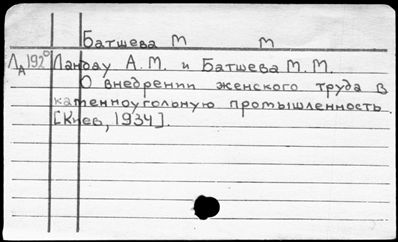 Батшева М М
ЛА192° Ландау А.М. и Батшева М.М.
О внедрении женского труда в
каменноугольную промышленность.
[Киев, 1934].